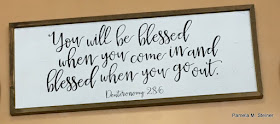 You will be blessed
when you come in and
blessed when you go out.
Deuteronomy 28:6